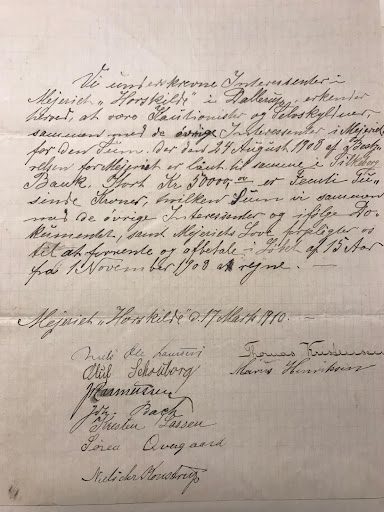 Vi underskrevne Interessenter i
Mejeriet "Horskilde" i Dallerup, erkender
herved, at være Kautionister og Selvskyldner,
sammen med de øvrige Interessenter i Mejeriet
for den Sum, der den 24 August 1908 af Besty-
relsen for Mejeriet er laant til samme i Silkborg
Bank. Stort Kr. 50000,00 er Femti Tu-
sinde Kroner, hvilken Sum vi sammen
med de øvrige Interessenter og ifølge Do-
kumentet, samt Mejeriets Love forpligter os
til at forrente og afbetale i Løbet af 15 Aar
fra 1 November 1908 at regne. —
Mejeriet "Horskilde" d. 17 Marts 1910. —
Niels Ole Laursen
Thomas Kristensen
Oluf Schouborg
Marius Henriksen
J Rasmussen
Bach
Kristen Lassen
Søren Overgaard
Niels Chr